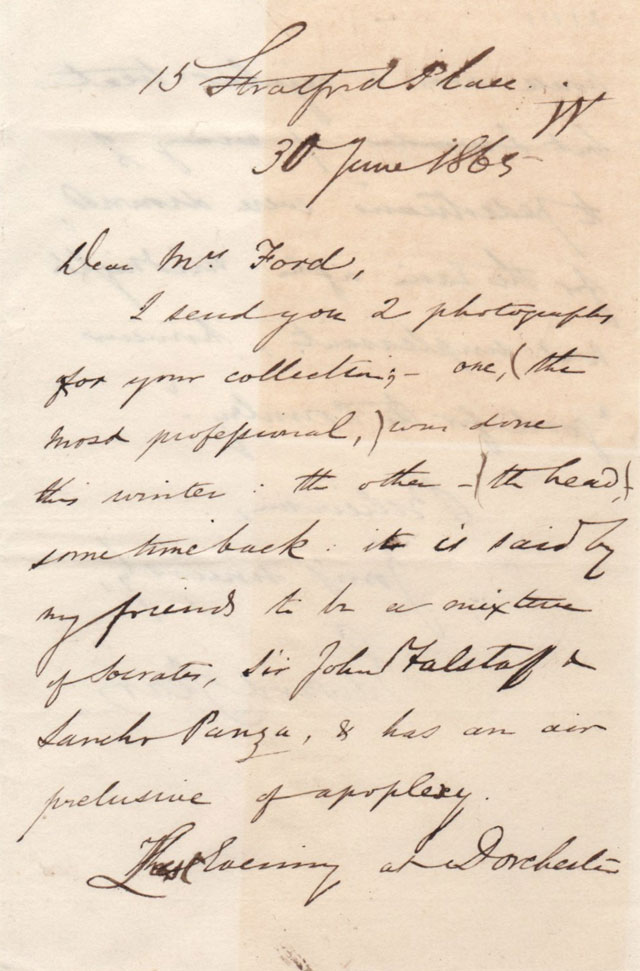 15 Stratford Place.
W
30 June 1865
Dear Mrs Ford,
I send you 2 photographs
for your collection; – one, (the
most professional,) was done
this winter : the other – (the head,)
sometime back : it is said by
my friends to be a mixture
of Socrates, Sir John Falstaff &
Sancho Panza, & has an air
prelusive of apoplexy.
Evening at Dorchester